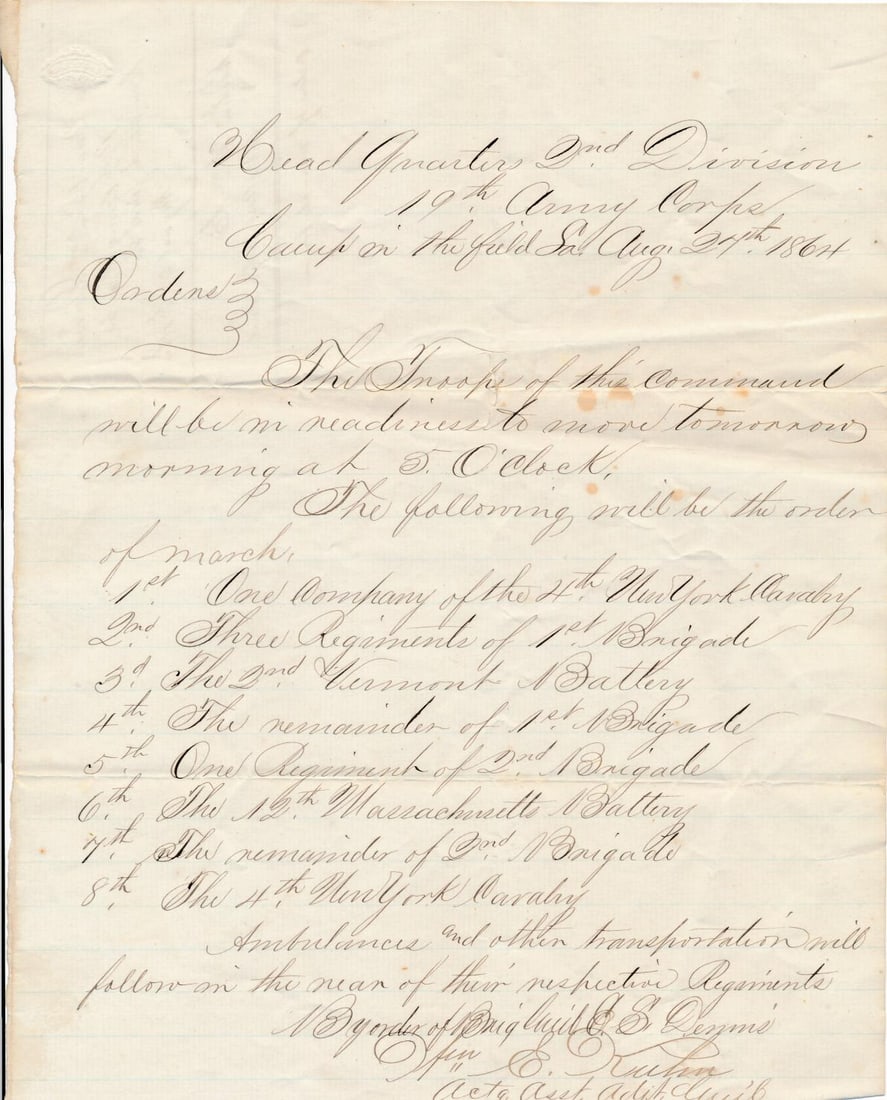 Head Quarters 2nd. Division
19th. Army Corps
Camp in the field La. Aug. 27th. 1864
Orders
The Troops of this command
will be in readiness to move tomorrow
morning at 5. O'clock.
The following will be the order
of march.
1st. One Company of the 4th. New York Cavalry
2nd. Three Regiments of 1st. Brigade
3d. The 2nd Vermont Battery
4th. The remainder of 1st. Brigade
5th. One Regiment of 2nd. Brigade
6th. The 12th. Massachusetts Battery
7th. The remainder of 2nd. Brigade
8th. The 4th. New York Cavalry
Ambulances and other transportation will
follow in the rear of their respective Regiments
By order of Brig Genl E. S. Dennis
Wm E. Kuhn
Actg Asst. Adjt. Gen'l